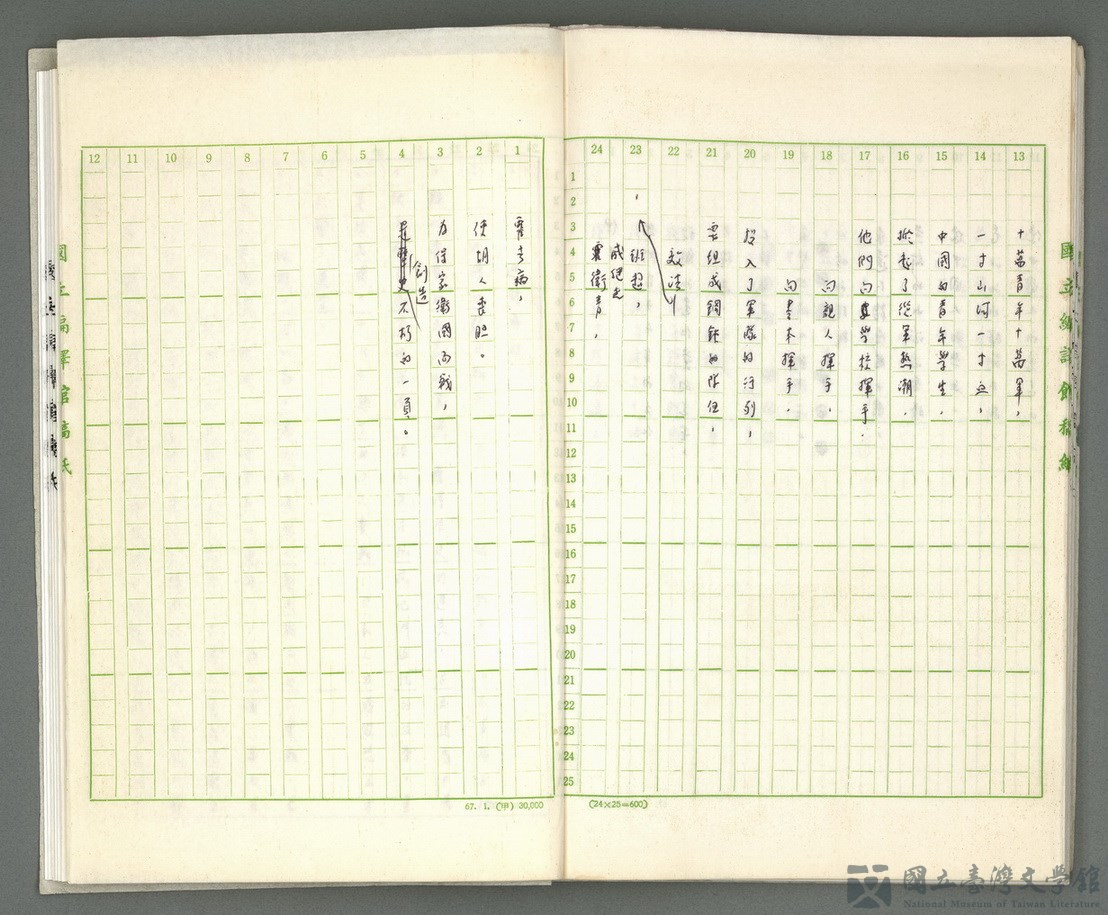 國立編譯館稿紙
13 14 15 16 17 18 19 20 21 22 23 24
十萬青年十萬軍,
一寸山河一寸血,
中國的青年學生,
掀起了從軍熱潮,
他們向學校揮手,
向親人揮手,
向書本揮手,
投入了軍隊的行列,
要組成鋼鐵的隊伍,
效法
班超,
戚繼光
衛青,
1 2 3 4 5 6 7 8 9 10 11 12 13 14 15 16 17 18 19 20 21 22 23 24 25
(24×25=600)
1 2 3 4 5 6 7 8 9 10 11 12
霍去病,
使胡人喪胆。
為保家衛國而戰,
創造
不朽的一頁。
67. 1. (甲) 30,000
國立編譯館稿紙
國立臺灣文學館
National Museum of Taiwan Literature